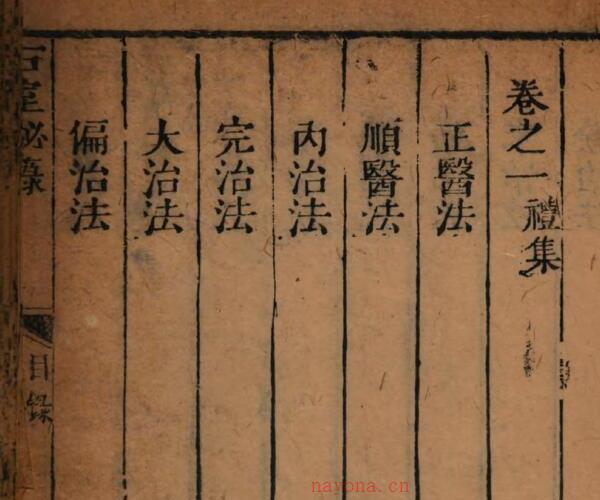 卷之一禮集
正醫法
順醫法
內治法
完治法
大治法
偏治法
石室祕錄
目錄
nayona.cn